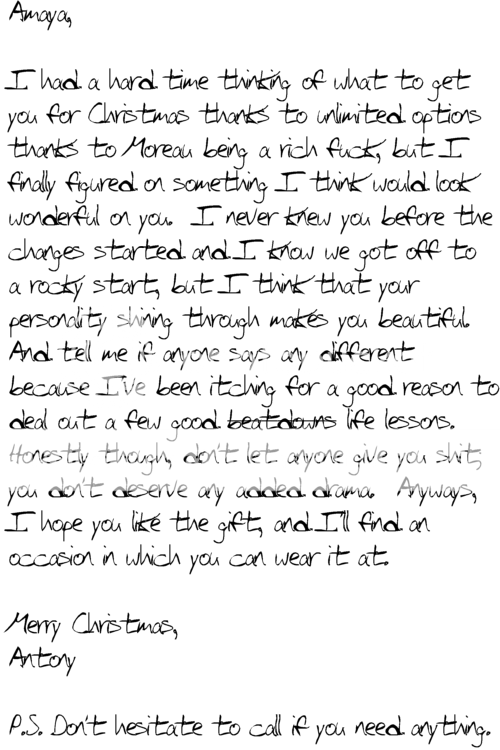 Amaya,
I had a hard time thinking of what to get
you for Christmas thanks to unlimited options
thanks to Moreau being a rich fuck, but I
finally figured on something I think would look
wonderful on you. I never knew you before the
changes started and I know we got off to
a rocky start, but I think that your
personality shining through makes you beautiful.
And tell me if anyone says any different
because I've been itching for a good reason to
deal out a few good beatdowns life lessons.
Honestly though, don't let anyone give you shit,
you don't deserve any added drama. Anyways,
I hope you like the gift, and I'll find an
occasion in which you can wear it at.
Merry Christmas,
Antony
P.S. Don't hesitate to call if you need anything.